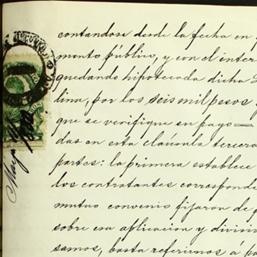 contandose desde la fecha en p
mento público, y con el inter
quedando hipotecada dicha
lina, por los seis mil pesos
que se verifique su pago
das en esta cláusula tercera
partes: la primera establece
los contratantes corresponde
mutuo convenio fijaron de
sobre esa aplicacion y divisi
samos, basta referirnos á pa